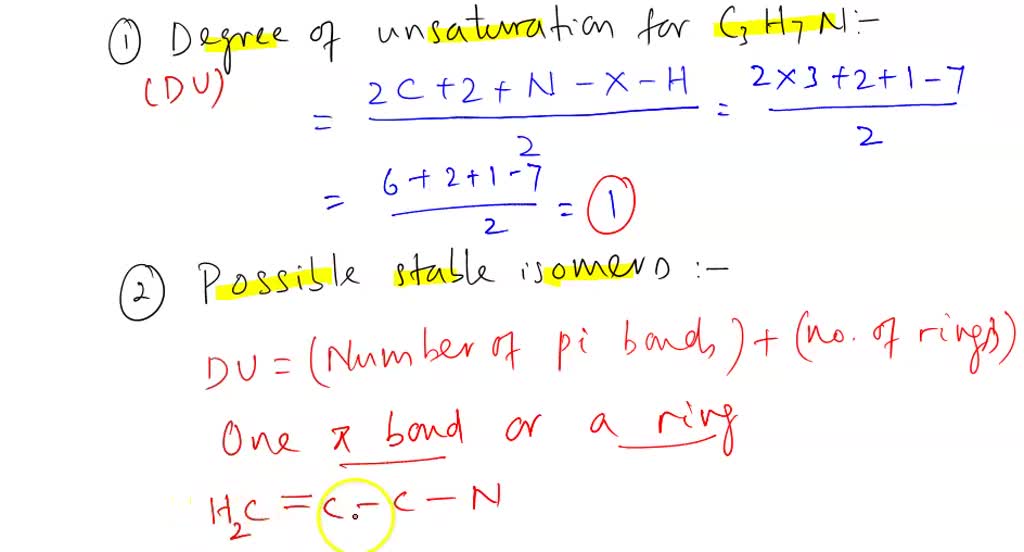 ① Degree of unsaturation for C3H7N:-
(DU)
= (2C+2+N-X-H)/2 = (2×3+2+1-7)/2
= (6+2+1-7)/2 = ①
② Possible stable isomers :-
DU = (Number of pi bonds) + (no. of rings)
One π bond or a ring
H2C = C - C - N